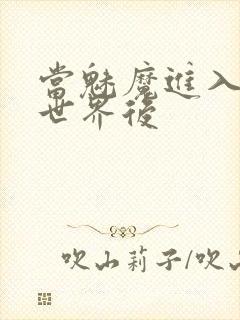 當魅魔進入
世界後
吹山莉子/吹山